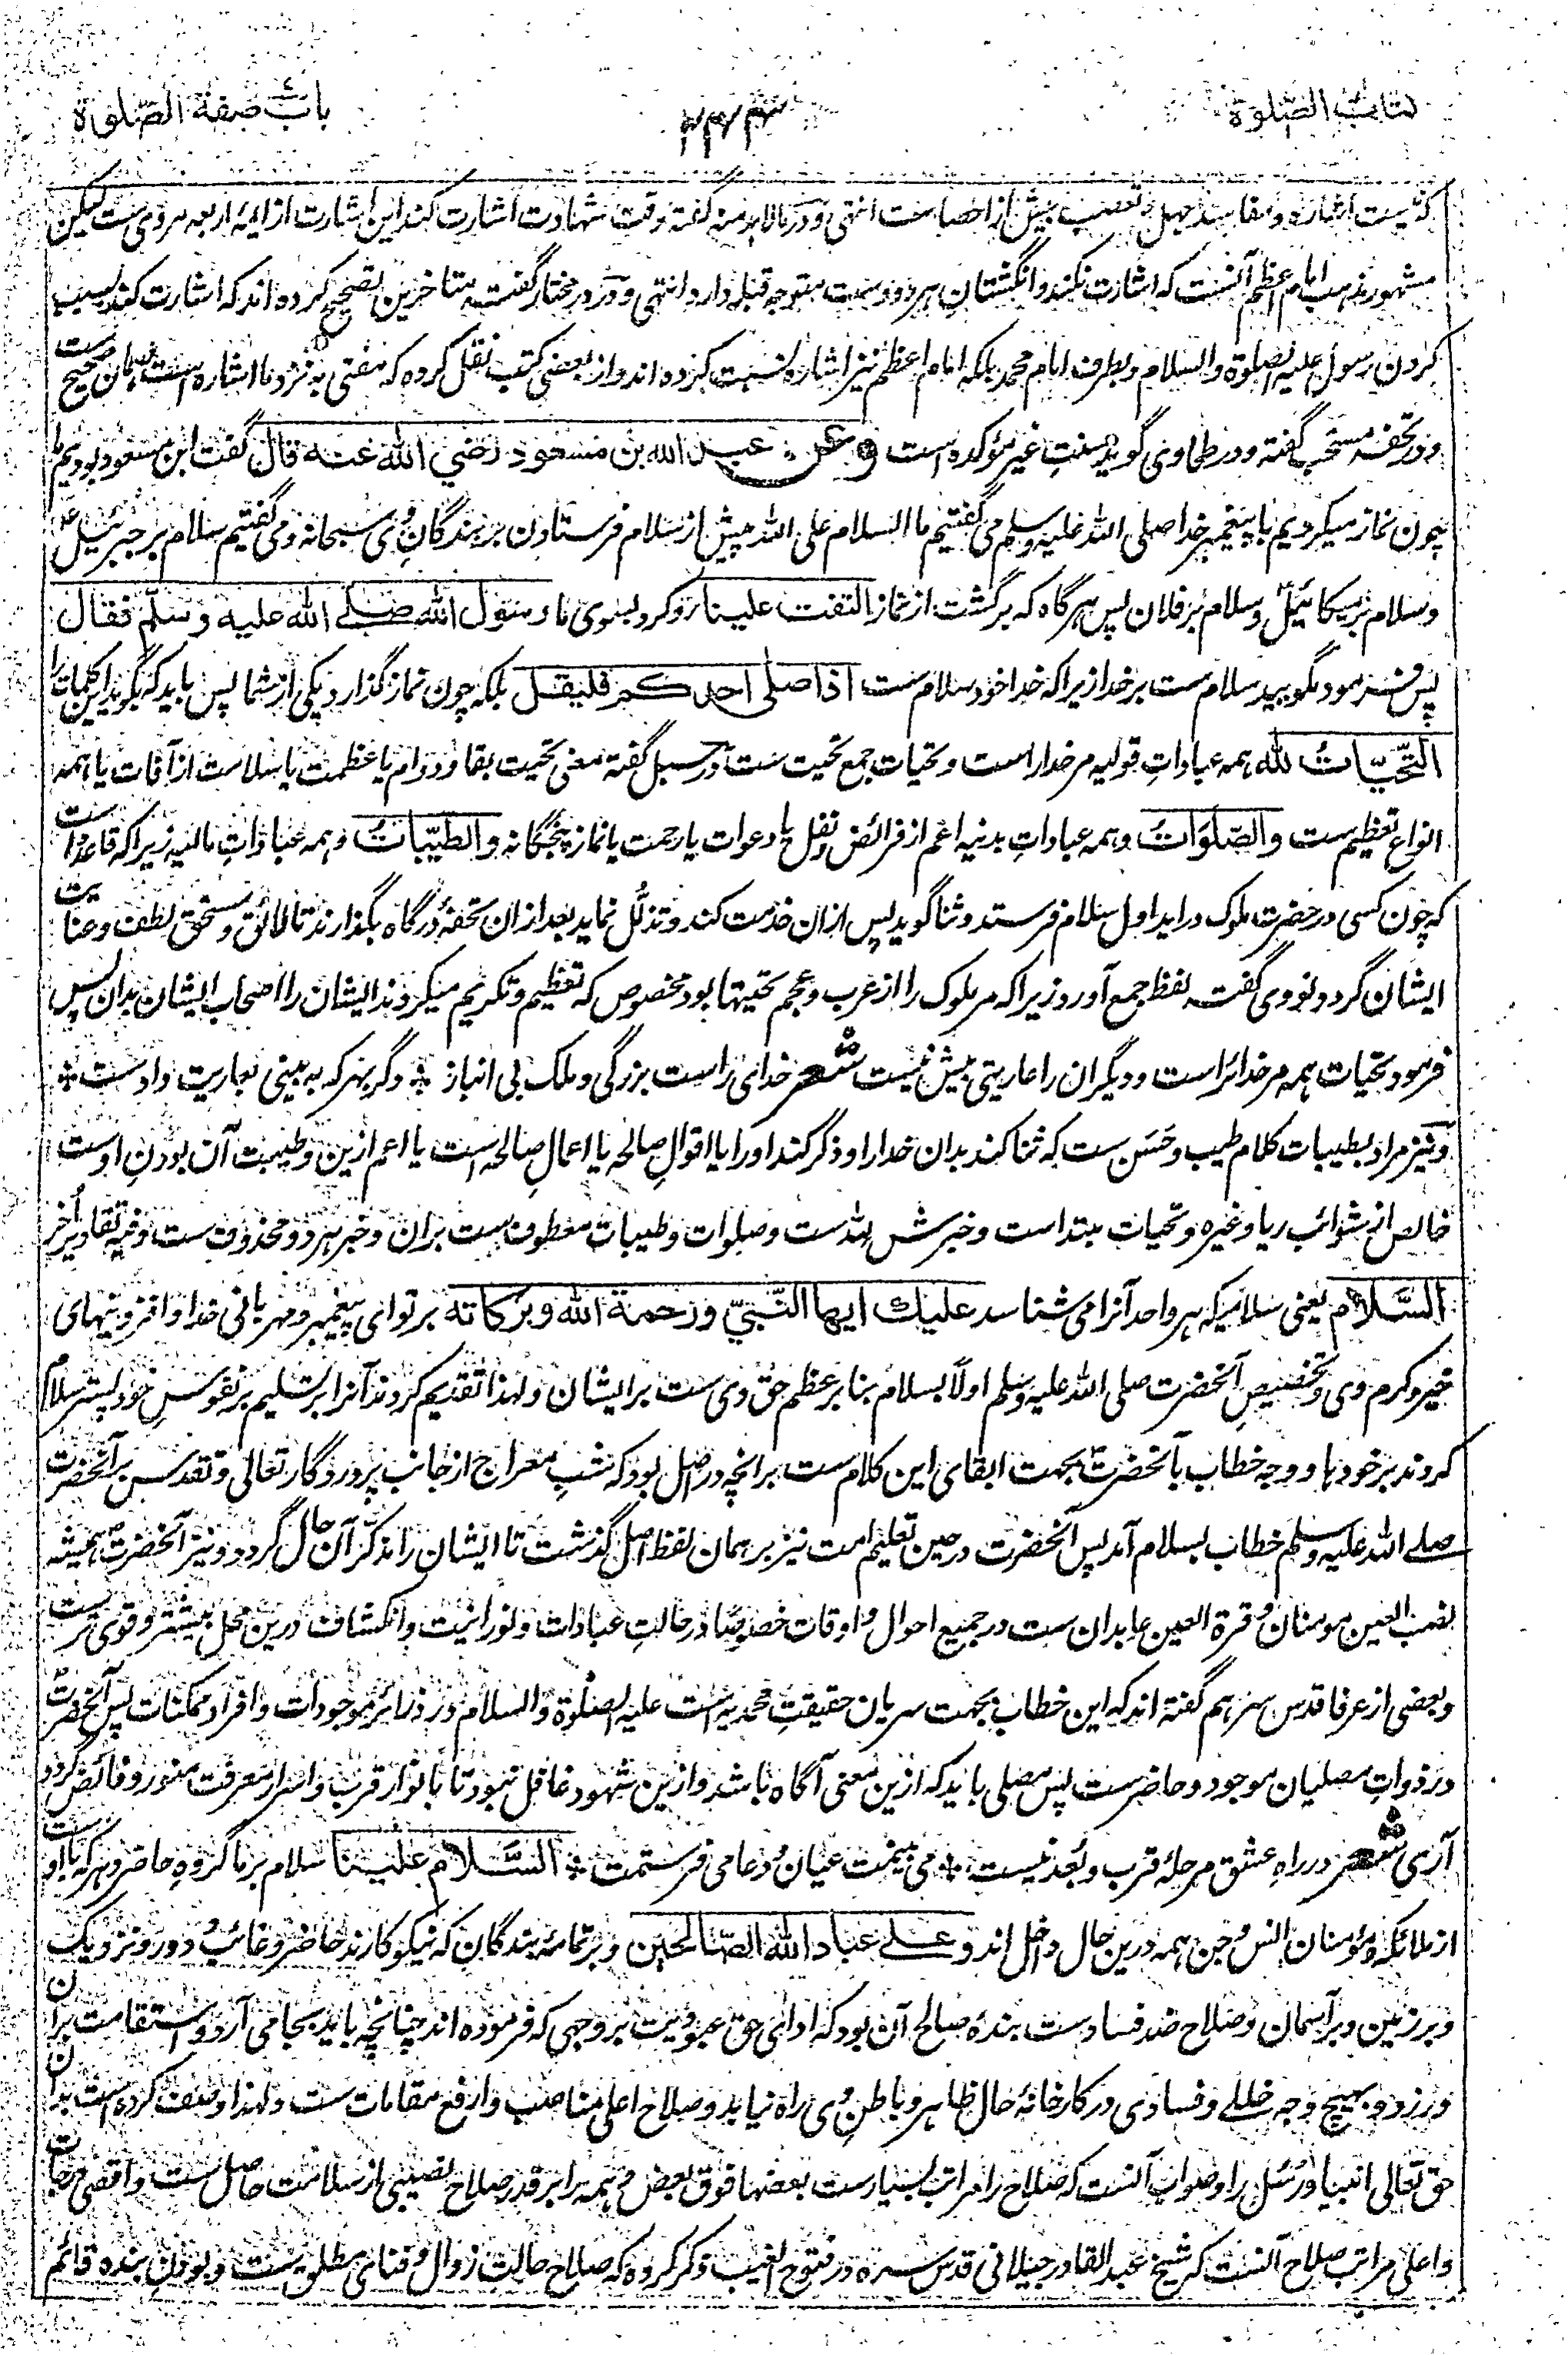 کتاب الصلوة
۲۴۳
باب صفة الصلوة
مشهور مذهب امام اعظم آنست که اشارت نکند و انگشتان هر دو دست متوجه قبله دارد انتهی و در در مختار گفته متاخرین تصحیح کرده اند که اشارت کند بسبب
کردن رسول علیه الصلوة والسلام و بطرف امام محمد بلکه امام اعظم نیز اشاره نسبت کرده اند و از بعضی کتب نقل کرده که مفتی به نزد ما اشاره است همان صحیح ست
و در تحفه مستحب گفته و در طحاوی گوید سنت غیر مؤکده است وعن عبد الله بن مسعود رضي الله عنه قال گفت ابن مسعود بودیم ما
چون نماز میکردیم با پیغمبر خدا صلی الله علیه وسلم می گفتیم ما السلام علی الله پیش از سلام فرستادن بر بندگان وی سبحانه و می گفتیم سلام بر جبرئیل
وسلام بر میکائیل وسلام بر فلان پس هرگاه که برگشت از نماز التفت علینا رو کرد بسوی ما رسول الله صلے الله علیه وسلم فقال
پس فرمود مگویید سلام ست بر خدا زیرا که خدا خود سلام ست اذا صلی احدکم فلیقل بلکه چون نماز گذارد یکی از شما پس باید که بگوید این کلمات را
التحیّاتُ لله همه عبادات قولیه مر خدا راست و تحیات جمع تحیت ست در سبل گفته معنی تحیت بقا و دوام یا عظمت یا سلامت از آفات یا همه
انواع تعظیم ست والصّلوَاتُ و همه عبادات بدنیه اعم از فرائض و نفل یا دعوات یا رحمت یا نماز پنجگانه والطیّباتُ و همه عبادات مالیه زیرا که قاعده است
که چون کسی در حضرت ملوک در اید اول سلام فرستد و ثنا گوید پس ازان خدمت کند و تذلّل نماید بعد ازان تحفهٔ درگاه بگذارند تا لائق و مستحق لطف و عنایت
ایشان گردد و نووی گفته لفظ جمع آورد زیرا که مر ملوک را از عرب و عجم تحیتها بود مخصوص که تعظیم و تکریم میکردند ایشان را اصحاب ایشان بدان پس
فرمود تحیات همه مر خدائراست و دیگران را عاریتی بیش نیست شعر خدای راست بزرگی و ملک بی انباز ٭ دگر بهر که به بینی بعاریت دادست ٭
و نیز مراد بطیبات کلام طیب و حسن ست که ثنا کند بدان خدا را و ذکر کند او را یا اقوالِ صالحه یا اعمالِ صالحه است یا اعم ازین و طیبت آن بودنِ اوست
خالص از شوائب ریا و غیره و تحیات مبتداست و خبرش لله ست و صلوات و طیبات معطوف ست بران و خبر هر دو محذوف ست وفیه تقادیر اُخر
السّلام یعنی سلامیکه هر واحد آنرا می شناسد علیك ایها النّبيّ ورحمة الله وبرکاته بر تو ای پیغمبر و مهربانی خدا و افزونیهای
خیر و کرم وی و تخصیصِ آنحضرت صلی الله علیه وسلم اولاً بسلام بنا بر عظم حق وی ست بر ایشان و لهذا تقدیم کردند آنرا بر تسلیم بر نفوسِ خود پستر سلام
کردند بر خود ها و وجه خطاب بآنحضرت بجهت ابقای این کلام ست برانچه در اصل بود که شبِ معراج از جانب پروردگار تعالی و تقدس بر آنحضرت
صلے الله علیه وسلم خطاب بسلام آمد پس آنحضرت در حین تعلیم امت نیز بر همان لفظ اصل گذشت تا ایشان را مذکّر آن حال گردد و نیز آنحضرت همیشه
نصب العین مومنان و قرة العین عابدان ست در جمیع احوال و اوقات خصوصًا در حالتِ عبادات و نورانیت و انکشاف درین محل بیشتر و قوی ترست
و بعضی از عرفا قدس سرهم گفته اند که این خطاب بجهت سریان حقیقتِ محمدیه است علیه الصلوة والسلام در ذرائر موجودات و افراد ممکنات پس آنحضرت
در ذواتِ مصلیان موجود و حاضرست پس مصلی باید که ازین معنی آگاه باشد و ازین شهود غافل نبود تا بانوار قرب و اسرار معرفت منور و فائض گردد
آری شعر در راهِ عشق مرحلهٔ قرب و بُعد نیست ٭ می بینمت عیان و دعا می فرستمت ٭ السّلام علینا سلام بر ما گروهِ حاضر و هر که با اوست
از ملائکه و مؤمنان انس و جن همه درین حال داخل اند وعلے عباد الله الصّالحین و بر تمامهٔ بندگان که نیکو کارند حاضر و غائب و دور و نزدیک
و بر زمین و بر آسمان و صلاح ضد فساد ست بندهٔ صالح آن بود که ادای حق عبودیت بر وجهی که فرموده اند چنانچه باید بجا می آرد و استقامت بران
ورزد و بهیچ وجه خللے و فسادی در کارخانهٔ حال ظاهر و باطنِ وی راه نیابد و صلاح اعلی مناصب و ارفع مقامات ست و لهذا وصف کرده است بدان
حق تعالی انبیا و رُسُل را و صواب آنست که صلاح را مراتب بسیارست بعضها فوق بعض و همه را بر قدر صلاح نصیبی از سلامت حاصل ست و اقصی درجات
و اعلی مراتب صلاح آنست که شیخ عبد القادر جیلانی قدس سره در فتوح الغیب ذکر کرده که صلاح حالتِ زوال و فنای مطلق ست و بودن بنده قائم